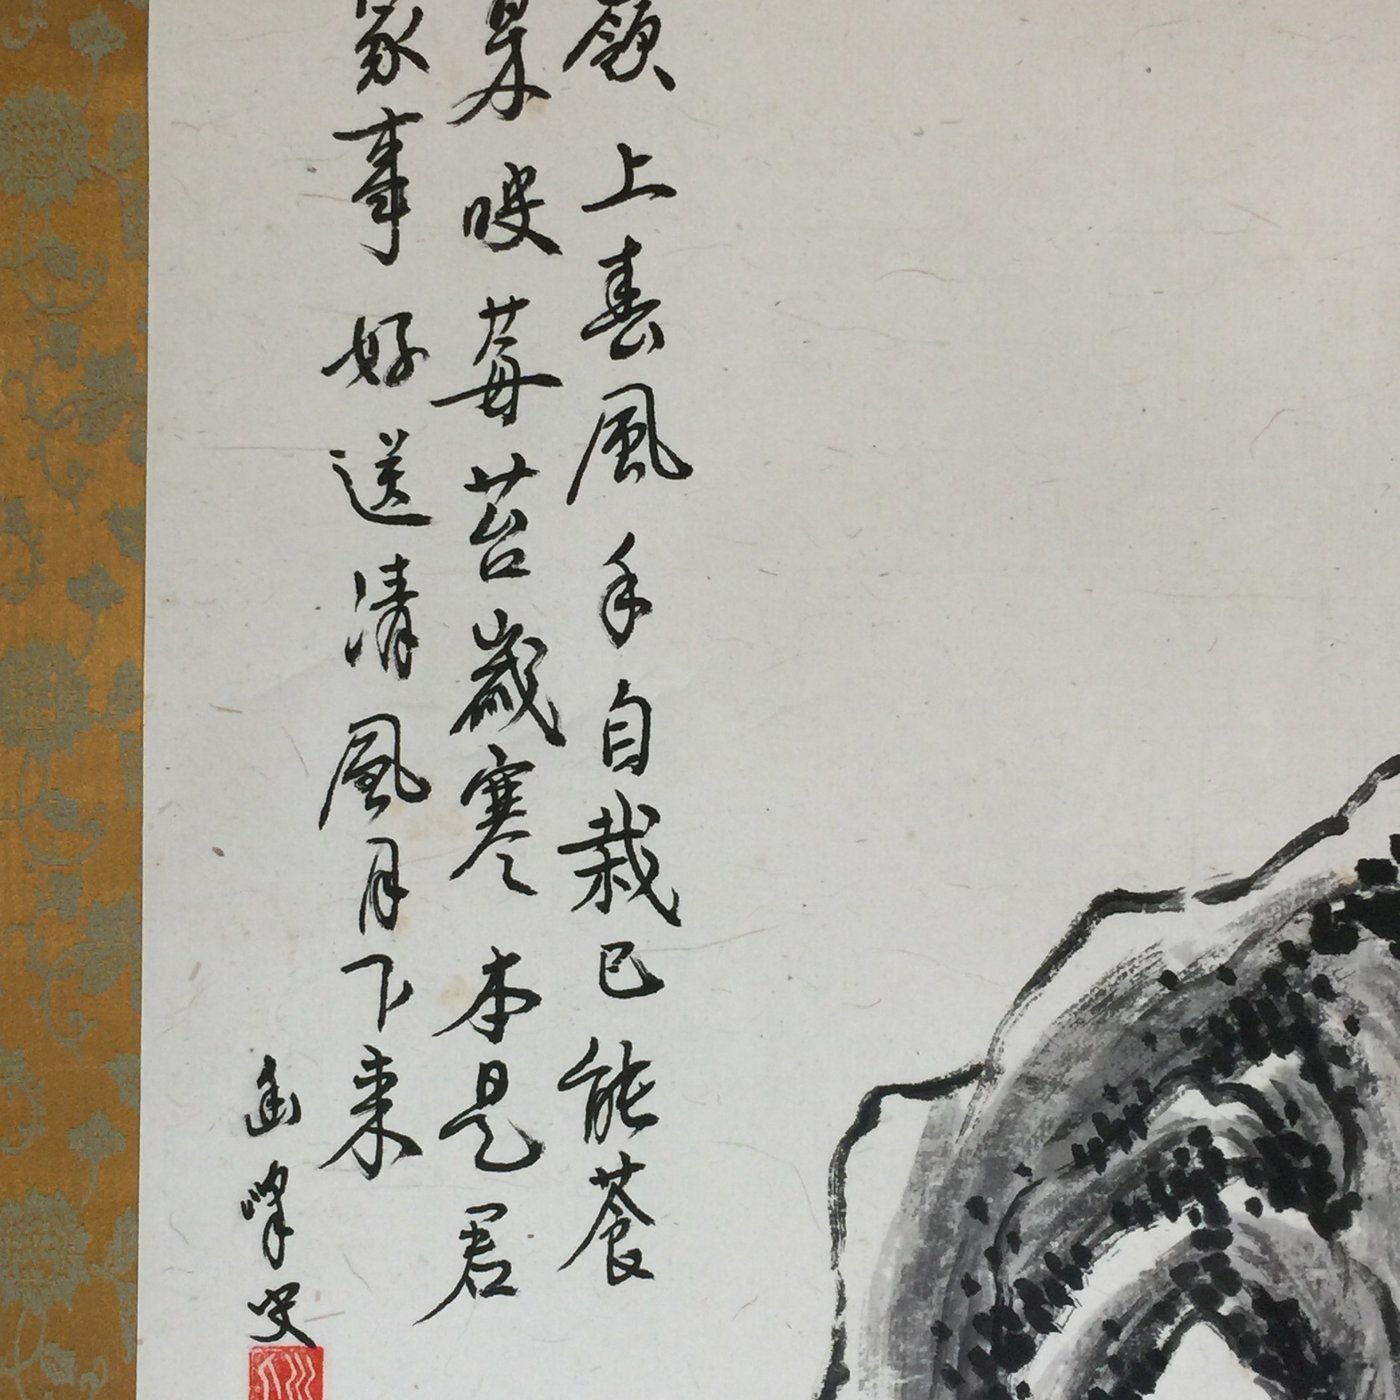 嶺上春風手自栽已能蒼
莓苔歲寒本是君
家事好送清風月下来
峯叟